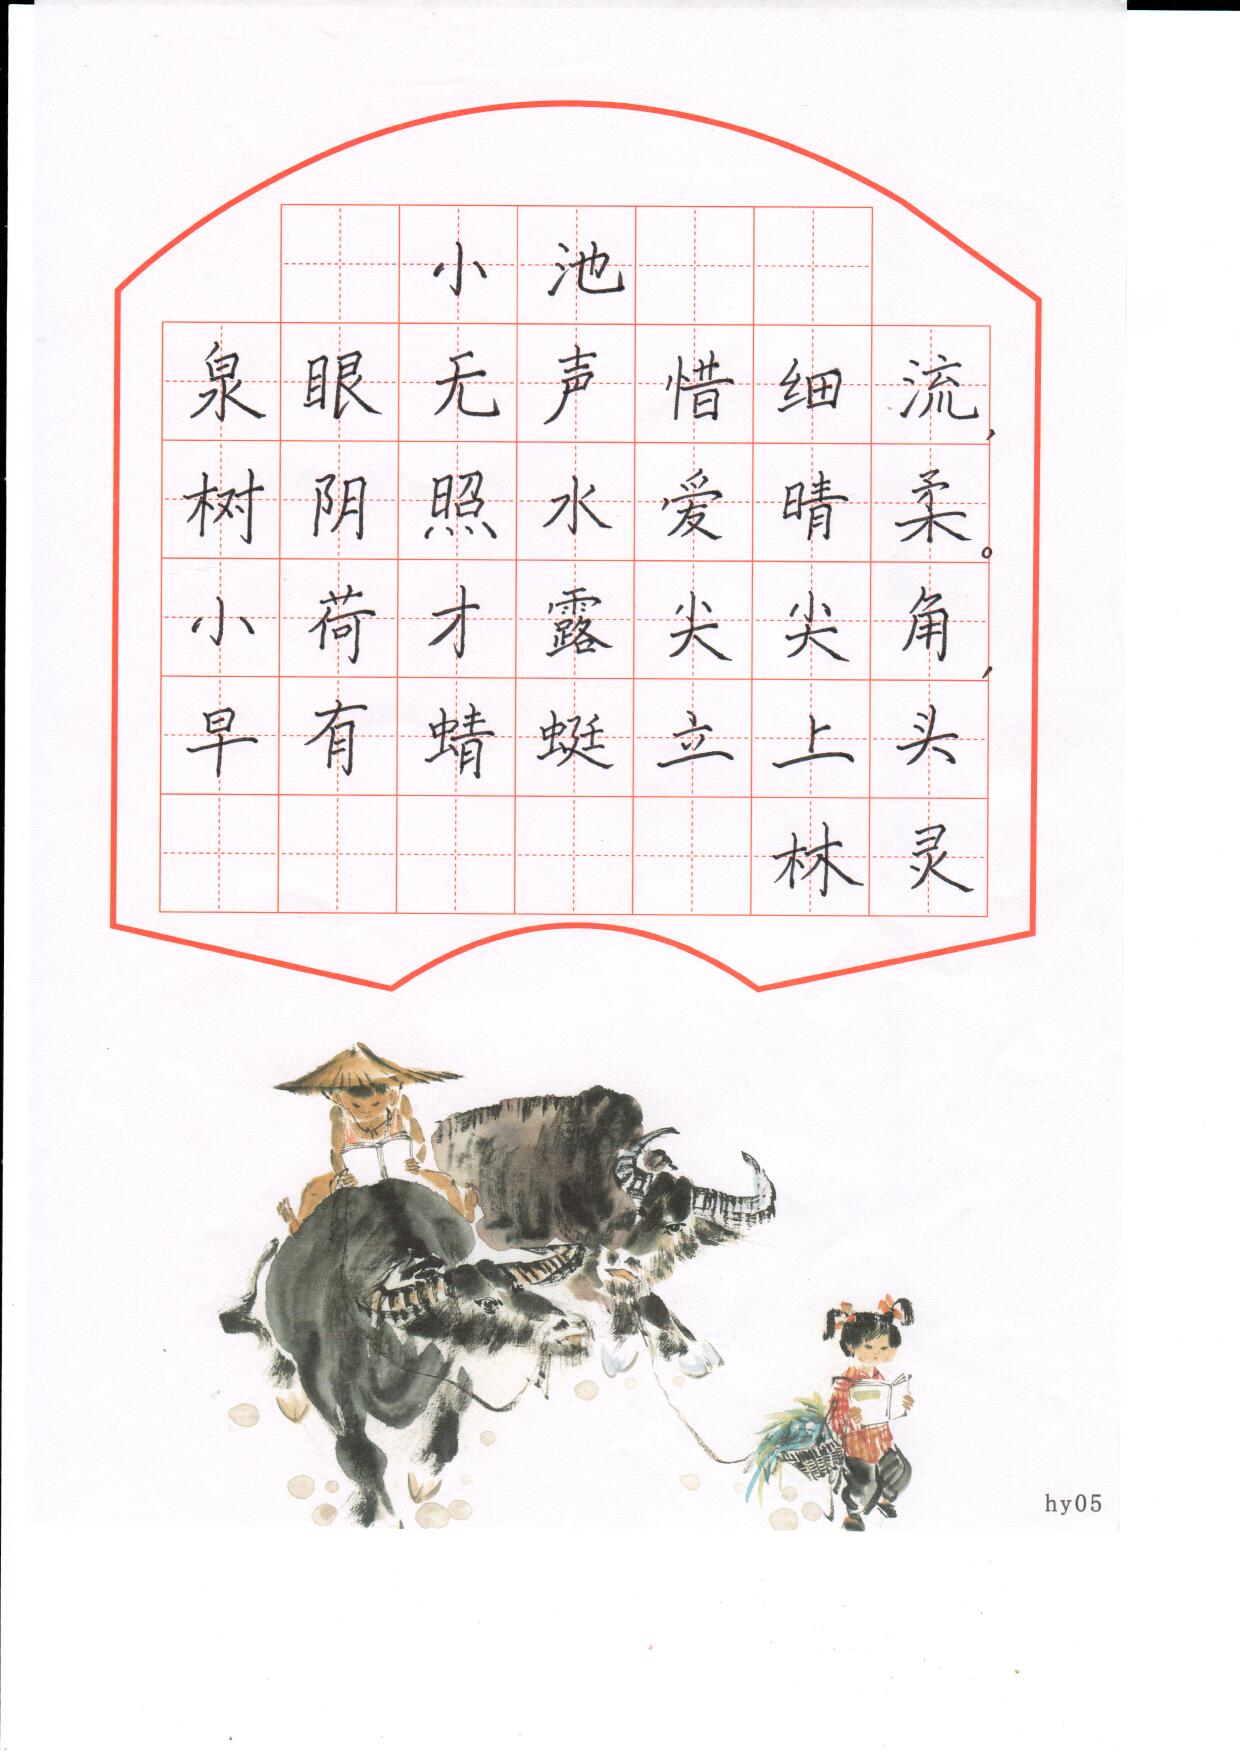 小池
泉眼无声惜细流，
树阴照水爱晴柔。
小荷才露尖尖角，
早有蜻蜓立上头
林灵
hy05